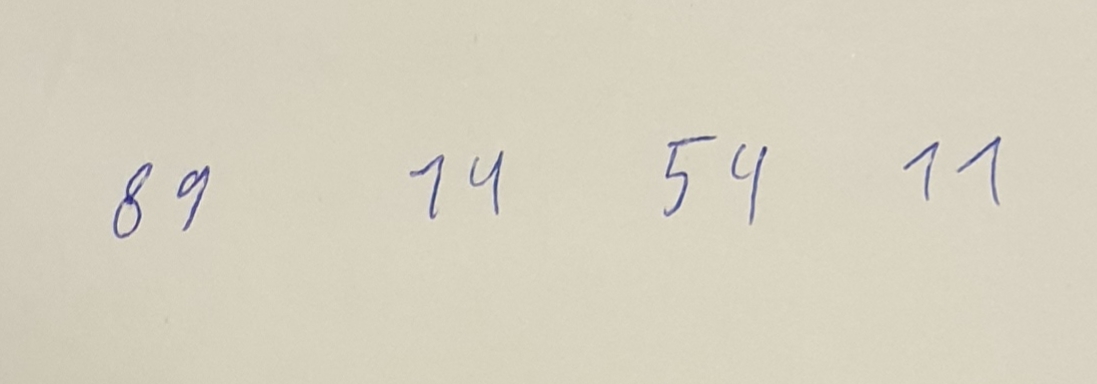 89 14 54 11